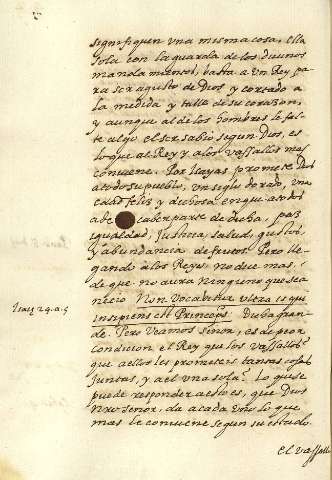 signifiquen una misma cosa, ella
sola con la guarda de los divinos
mandamientos, basta a un Rey pa
ra ser agusto de Dios y cortado a
la medida y talle de su corazon,
y aunque al de los hombres le fal
te algo el ser sabio segun Dios, es
lo que al Rey y a los vassallos mas
conviene. Por Isayas promete Dios
a todo su pueblo, un siglo dorado, una
edad feliz y dichosa en que a todos
a de caber parte de dicha, paz
igualdad, Justicia, salud, gustos,
y abundancia de frutos. Pero lle
gando a los Reyes no dice mas
de que no aura ninguno que sea
necio Non Vocabitur ultra is qui
Isaie
insipiens est Princeps. Duda gran
de. Pero Veamos señor, es de peor
condicion el Rey que los Vassallos
que a ellos les prometeis tantas cosas
Juntas, y a el una sola? Lo que se
puede responder a esto es, que Dios
nro señor, da a cada uno lo que
mas le conviene segun su estado.
El vassallo